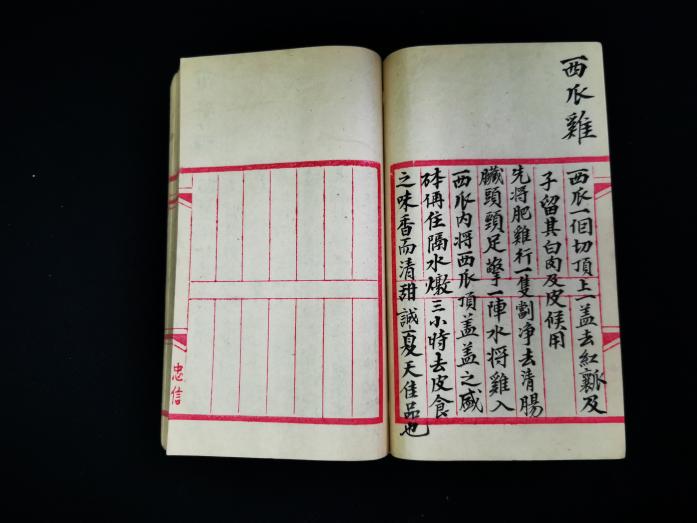 西瓜雞
西瓜一個切頂上一蓋去紅瓤及
子留其白肉及皮候用
先將肥雞行一隻劏净去清腸
臟頭頸足 一陣水將雞入
西瓜內將西瓜頂蓋蓋之盛
砵俑住隔水燉三小時去皮食
之味香而清甜誠夏天佳品也
忠信